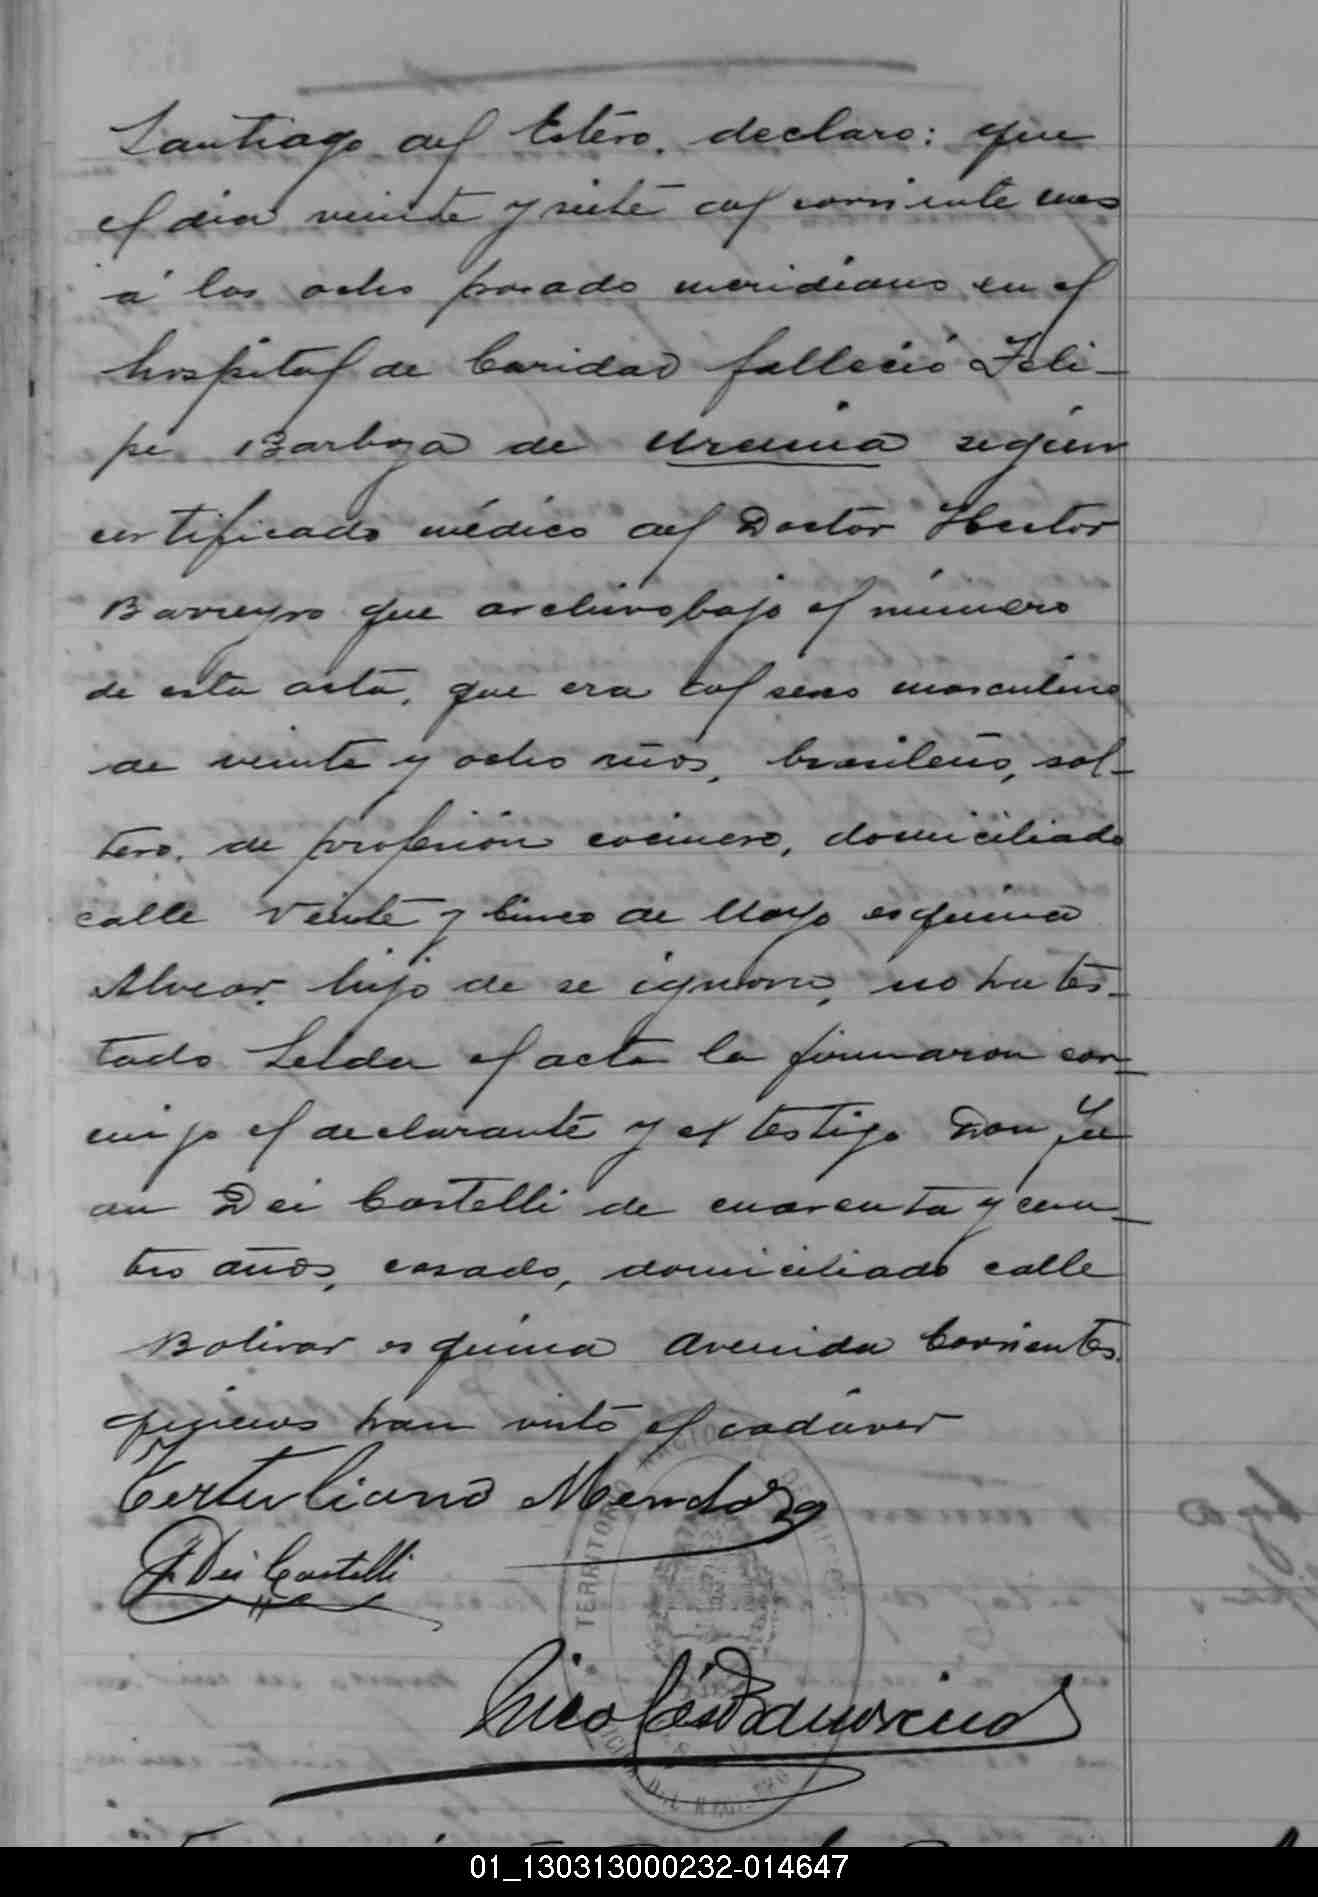 Santiago del Estéro, declaro: que
el dia veinte y siete del corriente mes
á las ocho pasado meridiano en el
hospital de Caridad falleció Feli-
pe Barboza de Uremia según
certificado médico del Doctor Hector
Barreyro que archivo bajo el número
de esta acta, que era del sexo masculino
de veinte y ocho años, brasileño, sol-
tero, de profesión cocinero, domiciliado
calle Veinte y Cinco de Mayo esquina
Alvear, hijo de se ignora, no ha tes-
tado Leida el acta la firmaron con-
migo el declarante y el testigo Don Ju
an Dei Castelli de cuarenta y cua-
tro años, casado, domiciliado calle
Bolivar esquina Avenida Corrientes.
quienes han visto el cadáver
Tertuliano Mendoza
J. Dei Castelli
TERRITORIO NACIONAL DE MISIONES
01_130313000232-014647